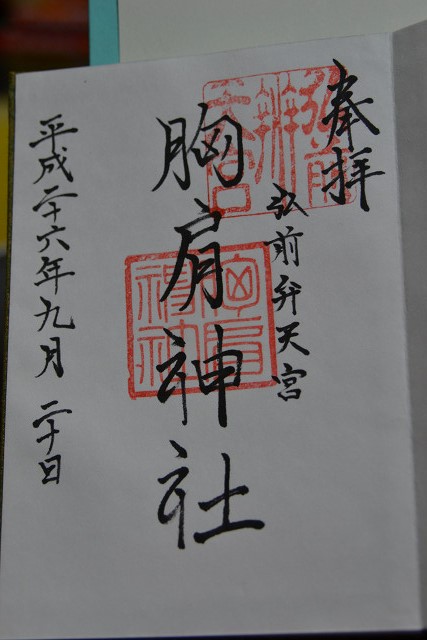 奉拝
弘前弁天宮
胸肩神社
平成二十六年九月二十日